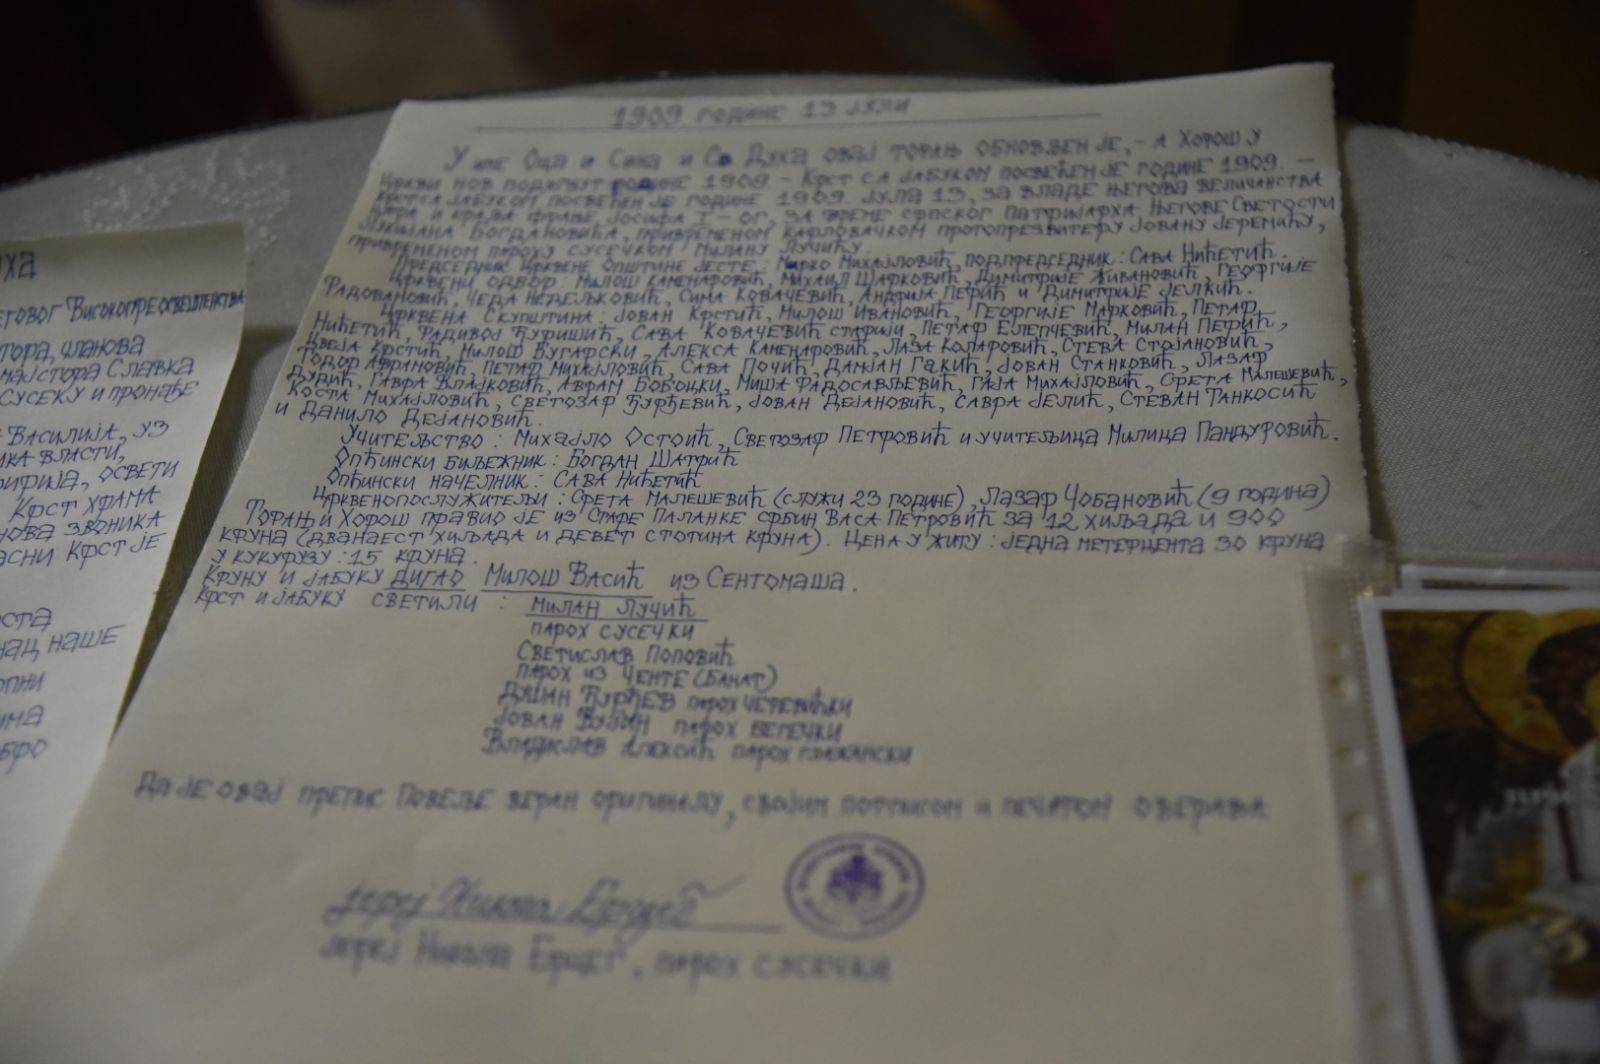 1909 ГОДИНЕ 13 ЈУЛИ
У ИМЕ ОЦА И СИНА И СВ ДУХА ОВАЈ ТОРАЊ ОБНОВЉЕН ЈЕ, - А ХОРОШ У
ЦРКВИ НОВ ПОДИГНУТ ГОДИНЕ 1909 - КРСТ СА ЈАБУКОМ ПОСВЕЋЕН ЈЕ ГОДИНЕ 1909. -
КРСТ СА ЈАБУКОМ ПОСВЕЋЕН ЈЕ ГОДИНЕ 1909. ЈУЛА 13, ЗА ВЛАДЕ ЊЕГОВА ВЕЛИЧАНСТВА
ЦАРА И КРАЉА ФРАЊЕ ЈОСИФА I-ОГ, ЗА ВРЕМЕ СРПСКОГ ПАТРИЈАРХА ЊЕГОВЕ СВЕТОСТИ
ЛУКИЈАНА БОГДАНОВИЋА, ПРИВРЕМЕНОМ КАРЛОВАЧКОМ ПРОТОПРЕЗВИТЕРУ ЈОВАНУ ЈЕРЕМИЋУ,
ПРИВРЕМЕНОМ ПАРОХУ СУСЕЧКОМ МИЛАНУ ЛУЧИЋУ.
ПРЕДСЕДНИК ЦРКВЕНЕ ОПШТИНЕ ЈЕСТЕ: МАРКО МИХАЈЛОВИЋ, ПОДПРЕДСЕДНИК: САВА НИЋЕТИЋ.
ЦРКВЕНИ ОДБОР: МИЛОШ КАМЕНАРОВИЋ, МИХАИЛ ШАРКОВИЋ, ДИМИТРИЈЕ ЖИВАНОВИЋ, ГЕОРГИЈЕ
РАДОВАНОВИЋ, ЧЕДА НЕДЕЉКОВИЋ, СИМА КОВАЧЕВИЋ, АНДРИЈА ПЕРИЋ И ДИМИТРИЈЕ ЈЕЛКИЋ.
ЦРКВЕНА СКУПШТИНА: ЈОВАН КРСТИЋ, МИЛОШ ИВАНОВИЋ, ГЕОРГИЈЕ МАРКОВИЋ, ПЕТАР
НИЋЕТИЋ, РАДИВОЈ ЂУРИШИЋ, САВА КОВАЧЕВИЋ СТАРИЈИ, ПЕТАР ЕЛЕПЧЕВИЋ, МИЛАН ПЕРИЋ,
ЦВЕЈА КРСТИЋ, МИЛОШ БУГАРСКИ, АЛЕКСА КАМЕНАРОВИЋ, ЛАЗА КОЛАРОВИЋ, СТЕВА СТОЈАНОВИЋ,
ТОДОР АВРАМОВИЋ, ПЕТАР МИХАЈЛОВИЋ, САВА ПОЧИЋ, ДАМЈАН ГАКИЋ, ЈОВАН СТАНКОВИЋ, ЛАЗАР
ДУДИЋ, ГАВРА ВЛАЈКОВИЋ, АВРАМ БОБОЦКИ, МИША РАДОСАВЉЕВИЋ, ГАЈА МИХАЈЛОВИЋ, СРЕТА МАЛЕШЕВИЋ,
КОСТА МИХАЈЛОВИЋ, СВЕТОЗАР ЂУРЂЕВИЋ, ЈОВАН ДЕЈАНОВИЋ, САВРА ЈЕЛИЋ, СТЕВАН ТАНКОСИЋ
И ДАНИЛО ДЕЈАНОВИЋ.
УЧИТЕЉСТВО: МИХАЈЛО ОСТОИЋ, СВЕТОЗАР ПЕТРОВИЋ И УЧИТЕЉИЦА МИЛИЦА ПАНДУРОВИЋ.
ОПЋИНСКИ БИЉЕЖНИК: БОГДАН ШАТРИЋ
ОПЋИНСКИ НАЧЕЛНИК: САВА НИЋЕТИЋ
ЦРКВЕНОПОСЛУЖИТЕЉИ: СРЕТА МАЛЕШЕВИЋ (СЛУЖИ 23 ГОДИНЕ), ЛАЗАР ЧОБАНОВИЋ (9 ГОДИНА)
ТОРАЊ И ХОРОШ ПРАВИО ЈЕ ИЗ СТАРЕ ПАЛАНКЕ СРБИН ВАСА ПЕТРОВИЋ ЗА 12 ХИЉАДА И 900
КРУНА (ДВАНАЕСТ ХИЉАДА И ДЕВЕТ СТОТИНА КРУНА). ЦЕНА У ЖИТУ: ЈЕДНА МЕТЕРЦЕНТА 30 КРУНА
У КУКУРУЗУ: 15 КРУНА.
КРУНУ И ЈАБУКУ ДИГАО МИЛОШ ВАСИЋ ИЗ СЕНТОМАША.
КРСТ И ЈАБУКУ СВЕТИЛИ: МИЛАН ЛУЧИЋ
ПАРОХ СУСЕЧКИ
СВЕТИСЛАВ ПОПОВИЋ
ПАРОХ ИЗ ЧЕНТЕ (БАНАТ)
ДУШАН ЂУРЂЕВ ПАРОХ ЧЕРЕВИЋКИ
ЈОВАН ВУЈИН ПАРОХ БЕГЕЧКИ
ВЛАДИСЛАВ АЛЕКСИЋ ПАРОХ
ДА ЈЕ ОВАЈ ПРЕПИС ПОВЕЉЕ ВЕРАН ОРИГИНАЛУ, СВОЈИМ ПОТПИСОМ И ПЕЧАТОМ ОВЕРАВА
јереј Никола
ЈЕРЕЈ НИКОЛА, ПАРОХ СУСЕЧКИ
УХА
ЕГОВОГ ВИСОКОПРЕОСВЕШТЕНСТВА
ТОРА, ЧЛАНОВА
МАЈСТОРА СЛАВКА
СУСЕКУ И ПРОНАЂЕ
ВАСИЛИЈА, УЗ
ИКА ВЛАСТИ,
РИФИЈА, ОСВЕТИ
КРСТ ХРАМА
НОВА ЗВОНИКА
АСНИ КРСТ ЈЕ
ОСТА
НАЦ НАШЕ
ОПНИ
ИМА
ОБРО